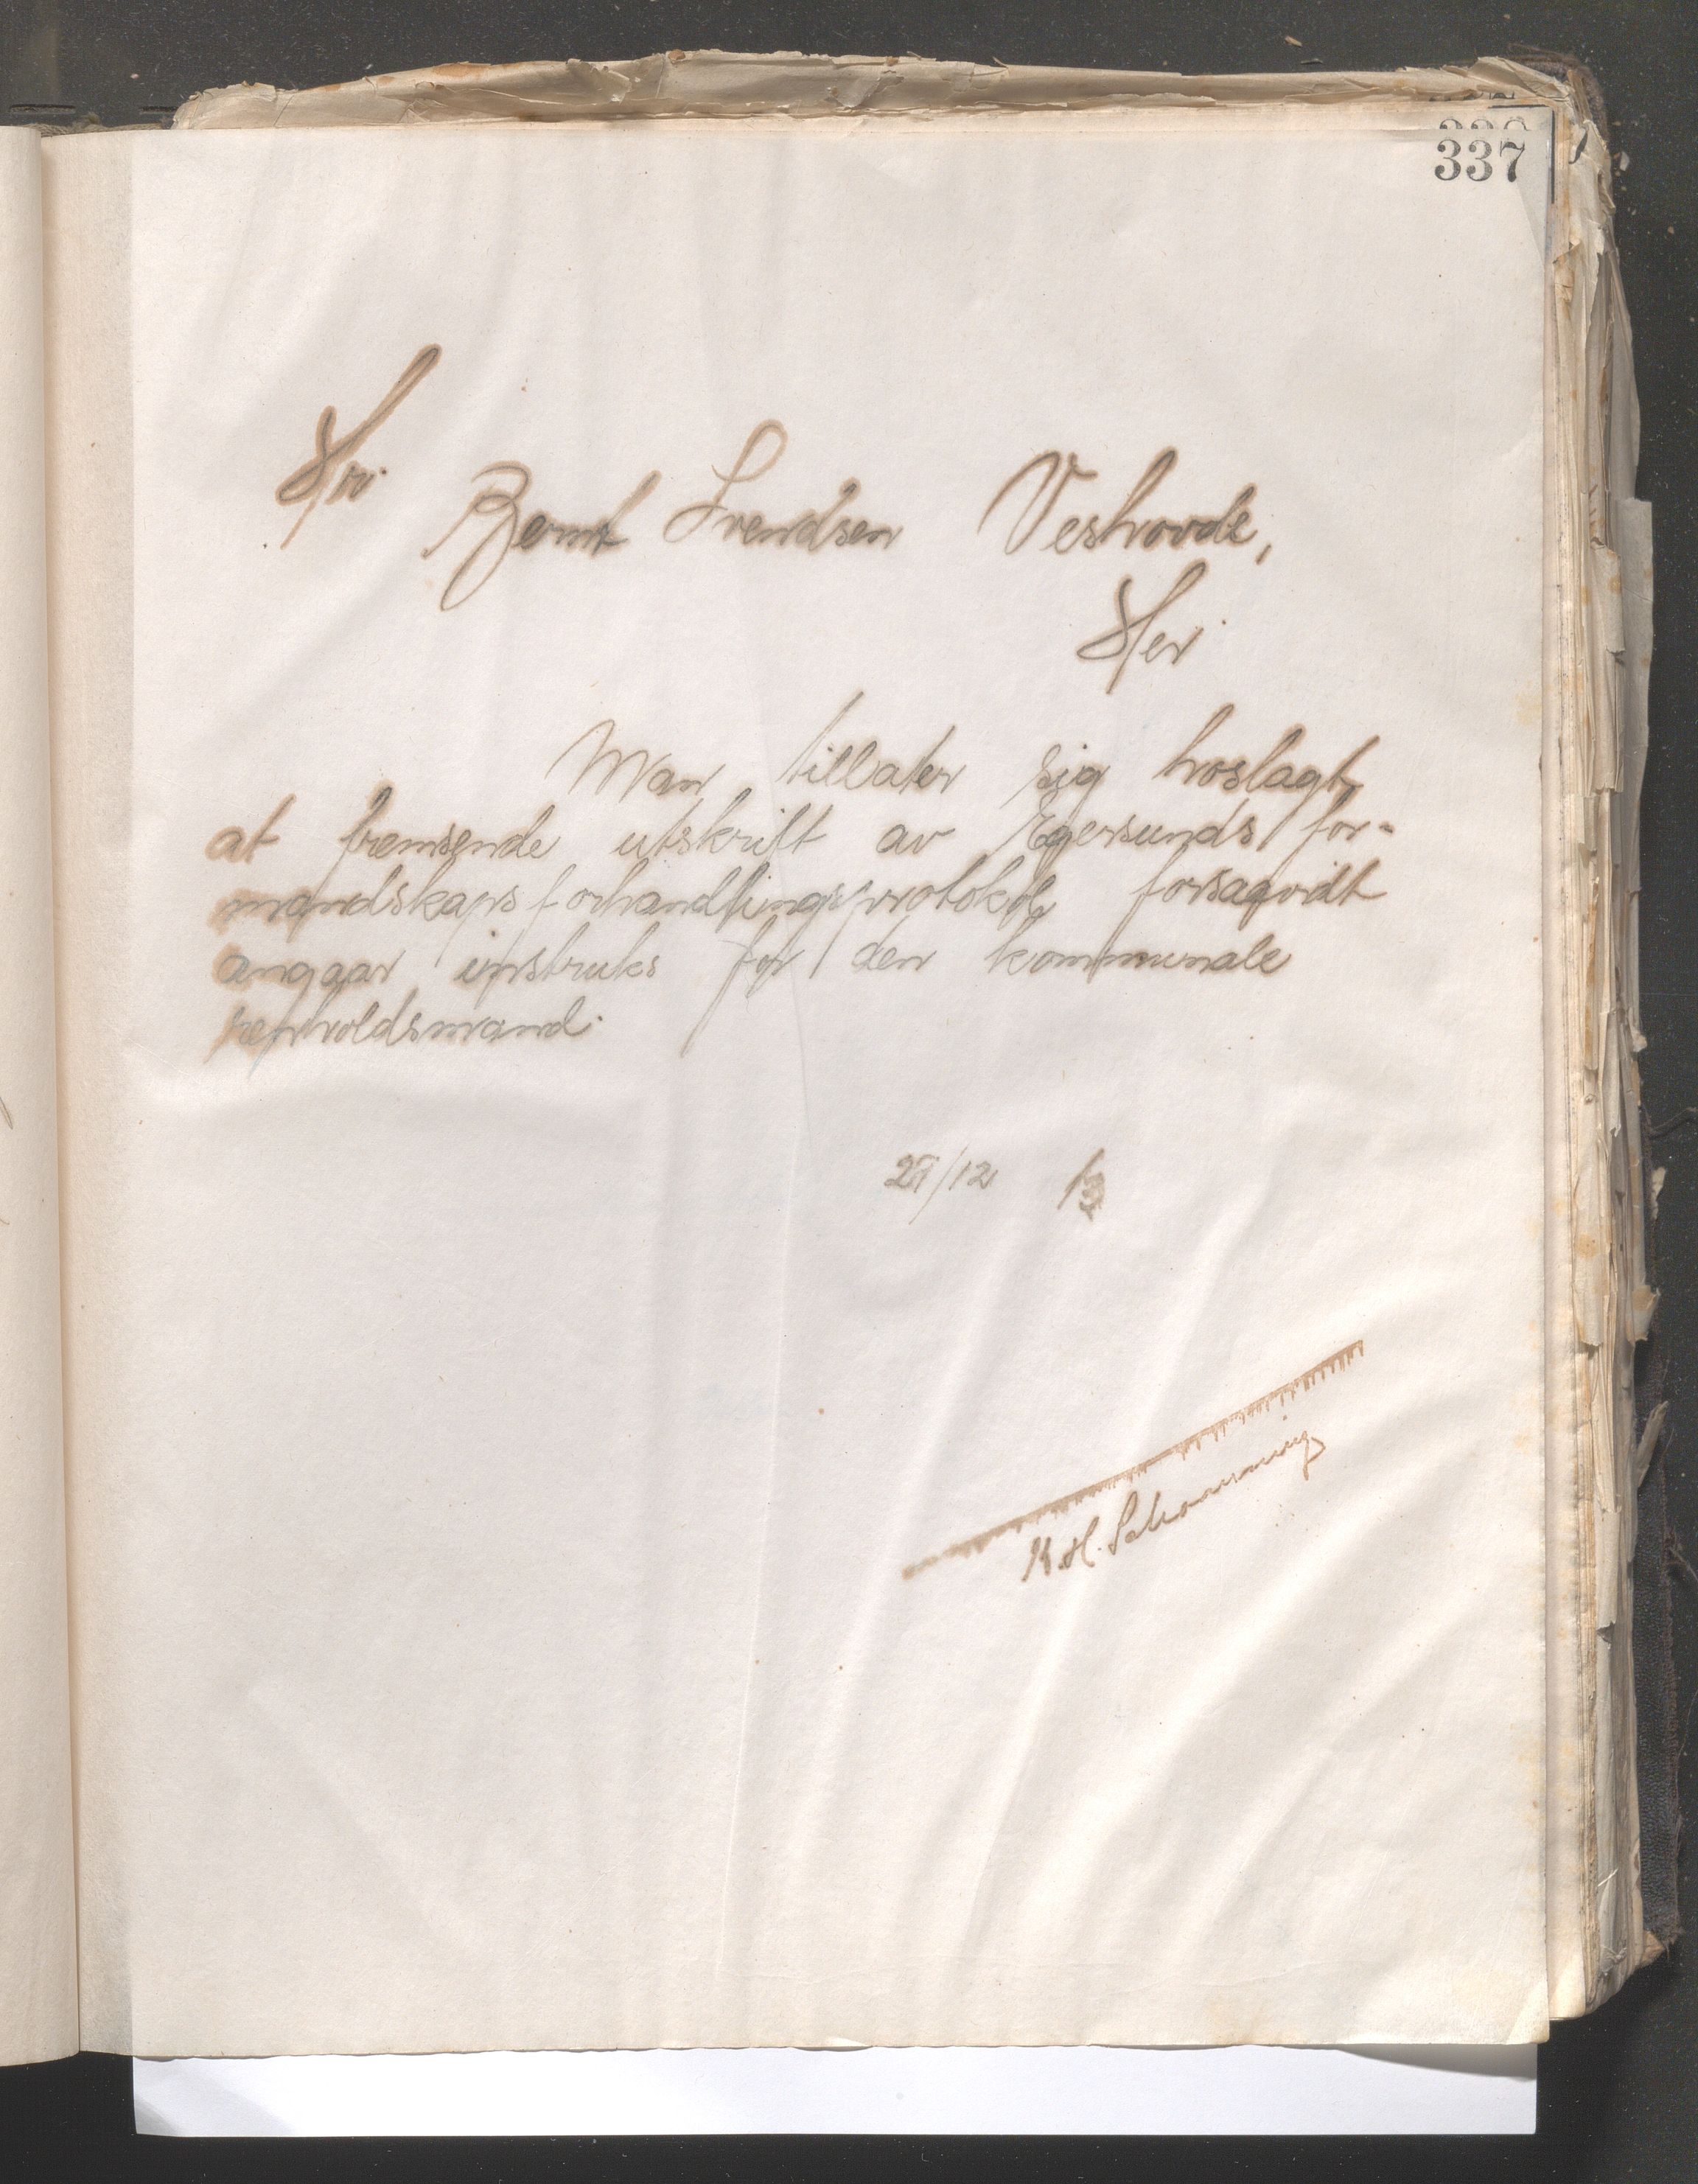 337
Hr.
Bernt Svendsen Veshovde,
Her.
Man tillater sig hoslagt
at fremsende utskrift av Egersunds for-
mandskaps forhandlingsprotokol, forsaavidt
angaar instruks for den kommunale
renholdsmand.
29/12 13
H. Schanning